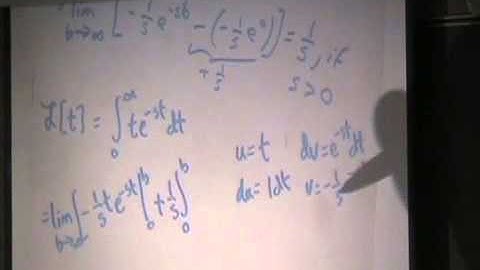 = lim b→∞ [-1/s e^-sb - (-1/s e^0)] = 1/s, if
+ 1/s
s > 0
ℒ[t] = ∫_0^∞ te^-st dt
u = t dv = e^-st dt
du = 1dt v = -1/s
= lim b→∞ [-1/s te^-st |_0^b + 1/s ∫_0^b